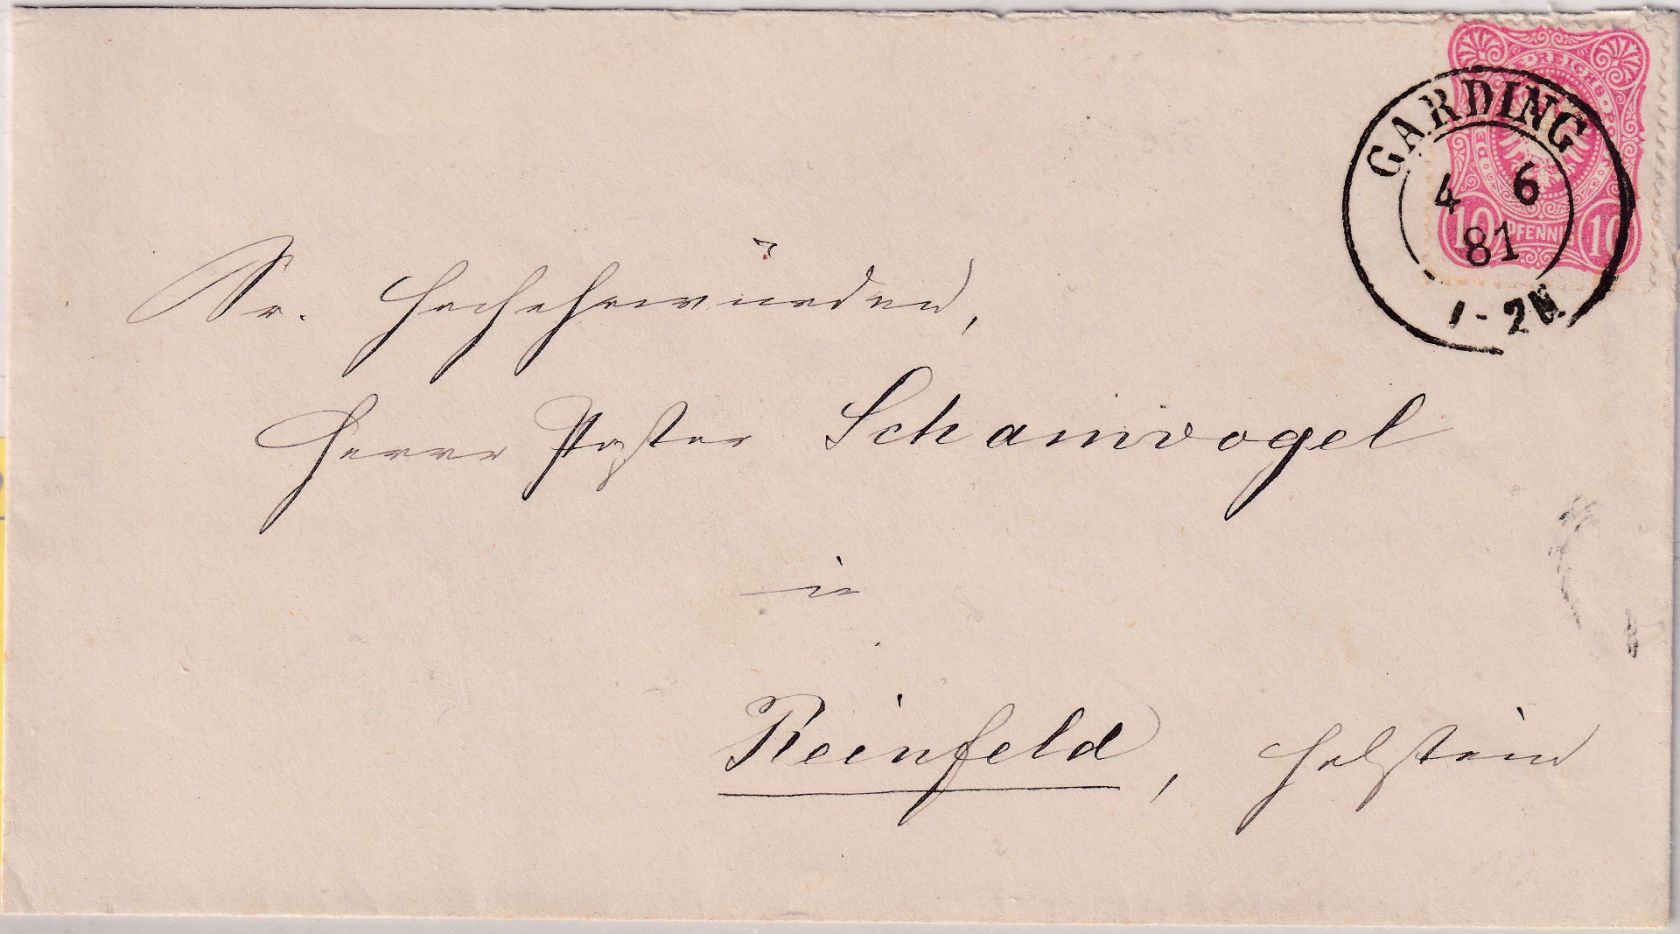 DEUTSCHE REICHS-POST
10 PFENNIG 10
GARDING
4 6
81
1-2N.
Sr. Hochehrwürden,
Herrn Pastor Schamvogel
in
Reinfeld, Holstein